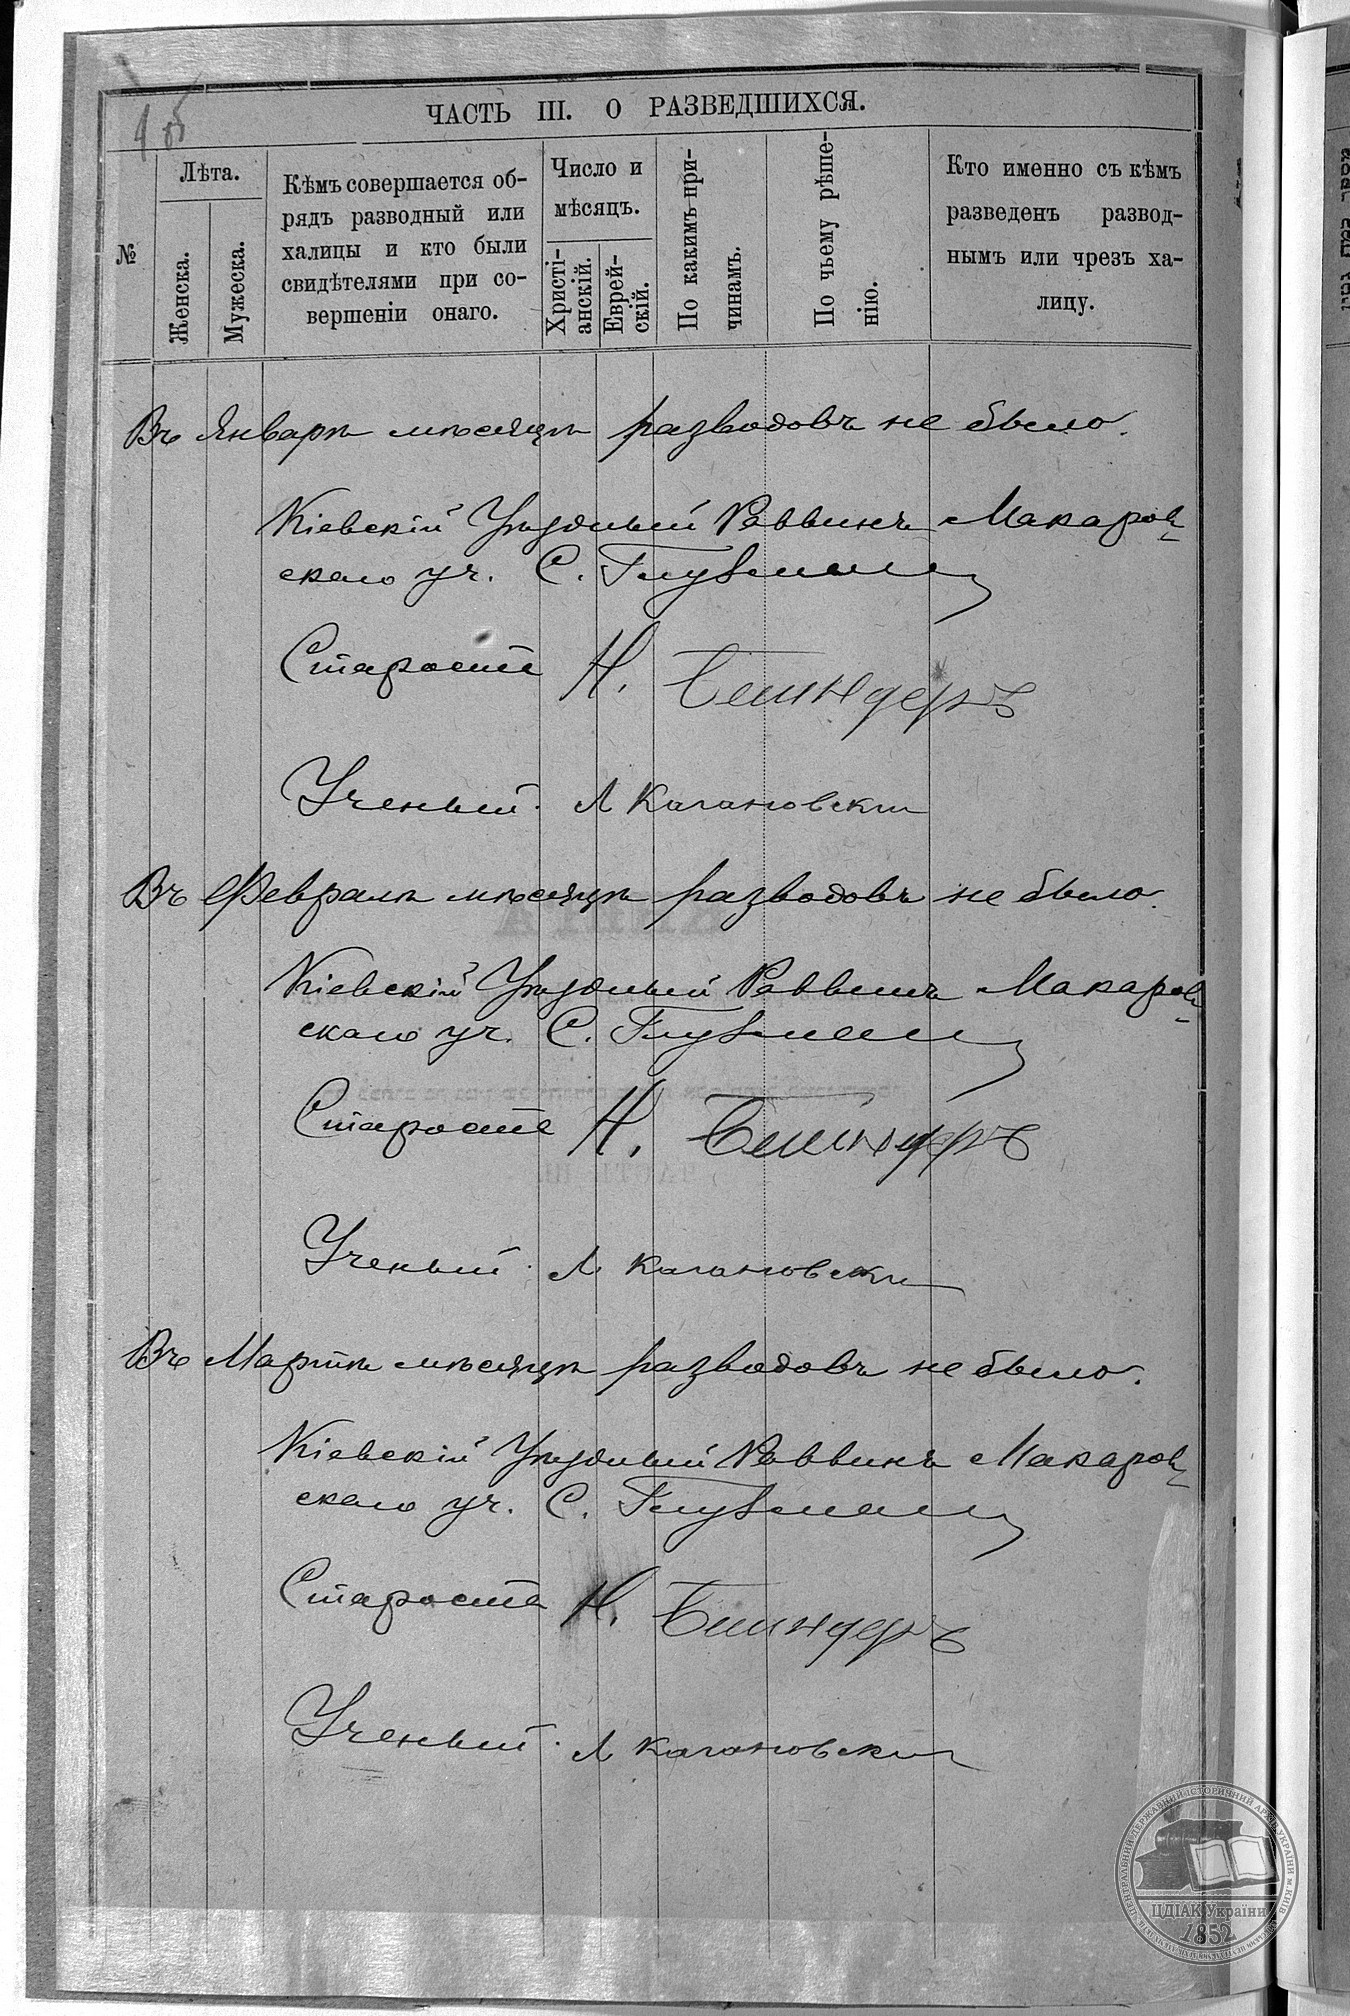 1 об
ЧАСТЬ III. О РАЗВЕДШИХСЯ.
№
Лѣта.
Женска.
Мужеска.
Кѣмъ совершается об-
рядъ разводный или
халицы и кто были
свидѣтелями при со-
вершеніи онаго.
Число и
мѣсяцъ.
Христі-
анскій.
Еврей-
скій.
По какимъ при-
чинамъ.
По чьему рѣше-
нію.
Кто именно съ кѣмъ
разведенъ развод-
нымъ или чрезъ ха-
лицу.
Въ Январѣ мѣсяцѣ разводовъ не было.
Кіевскій Уѣздный Раввинъ Макаров-
скаго уч. С. Глузман
Староста Н.
Ученый Л Кагановский
Въ Февралѣ мѣсяцѣ разводовъ не было.
Кіевскій Уѣздный Раввинъ Макаров-
скаго уч. С. Глузман
Староста Н.
Ученый Л Кагановский
Въ Мартѣ мѣсяцѣ разводовъ не было.
Кіевскій Уѣздный Раввинъ Макаров-
скаго уч. С. Глузман
Староста Н.
Ученый Л Кагановский
ЦДІАК України
1852